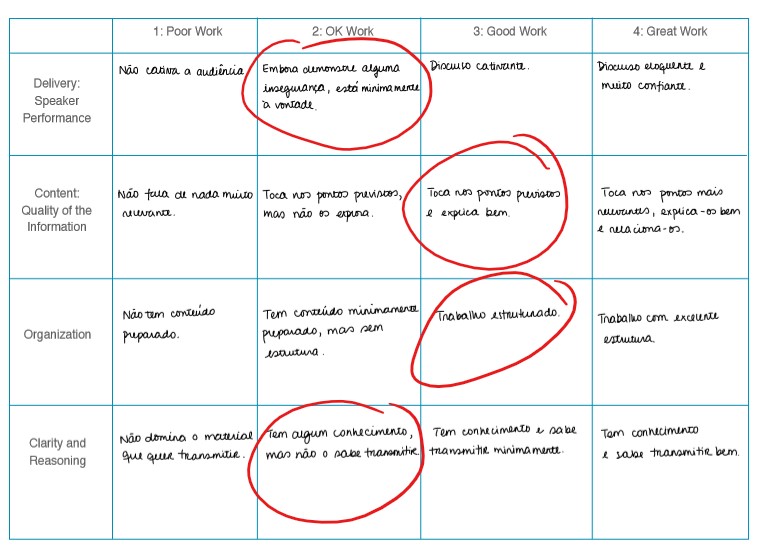 1: Poor Work
2: OK Work
3: Good Work
4: Great Work
Delivery:
Speaker
Performance
Não cativa a audiência
Embora demonstre alguma
insegurança, está minimamente
à vontade.
Discurso cativante.
Discurso eloquente e
muito confiante.
Content:
Quality of the
Information
Não fala de nada muito
relevante.
Toca nos pontos previstos,
mas não os explora.
Toca nos pontos previstos
e explica bem.
Toca nos pontos mais
relevantes, explica-os bem
e relaciona-os.
Organization
Não tem conteúdo
preparado.
Tem conteúdo minimamente
preparado, mas sem
estrutura.
Trabalho estruturado.
Trabalho com excelente
estrutura.
Clarity and
Reasoning
Não domina o material
que quer transmitir.
Tem algum conhecimento,
mas não o sabe transmitir
Tem conhecimento e sabe
transmitir minimamente.
Tem conhecimento
e sabe transmitir bem.